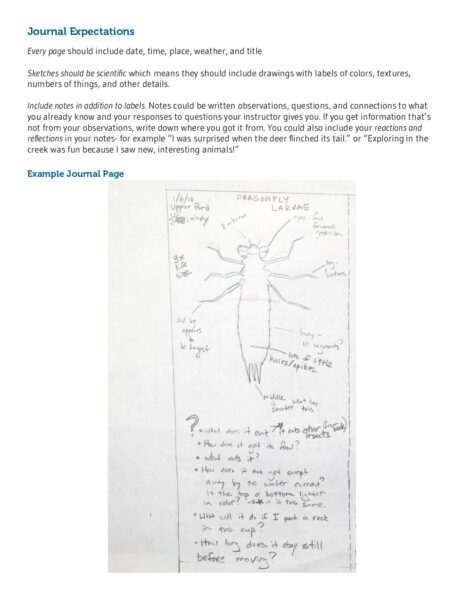 Journal Expectations
Every page should include date, time, place, weather, and title
Sketches should be scientific which means they should include drawings with labels of colors, textures,
numbers of things, and other details.
Include notes in addition to labels. Notes could be written observations, questions, and connections to what
you already know and your responses to questions your instructor gives you. If you get information that's
not from your observations, write down where you got it from. You could also include your reactions and
reflections in your notes- for example "I was surprised when the deer flinched its tail." or "Exploring in the
creek was fun because I saw new, interesting animals!"
Example Journal Page
1/6/16
Upper Pond
windy
DRAGONFLY
LARVAE
eyes - face
forward
3x
life
size
leg -
3rd leg
appears
to be
longest
body -
10 segments?
lots of little
hairs/spikes
middle
shorter
? • What does it eat? it eats other insects
• How does it get its food?
• What eats it?
• How does it not get swept
away by the water current?
Is the top or bottom lighter
in color? it is the same.
• What will it do if I put a rock
in the cup?
• How long does it stay still
before moving?